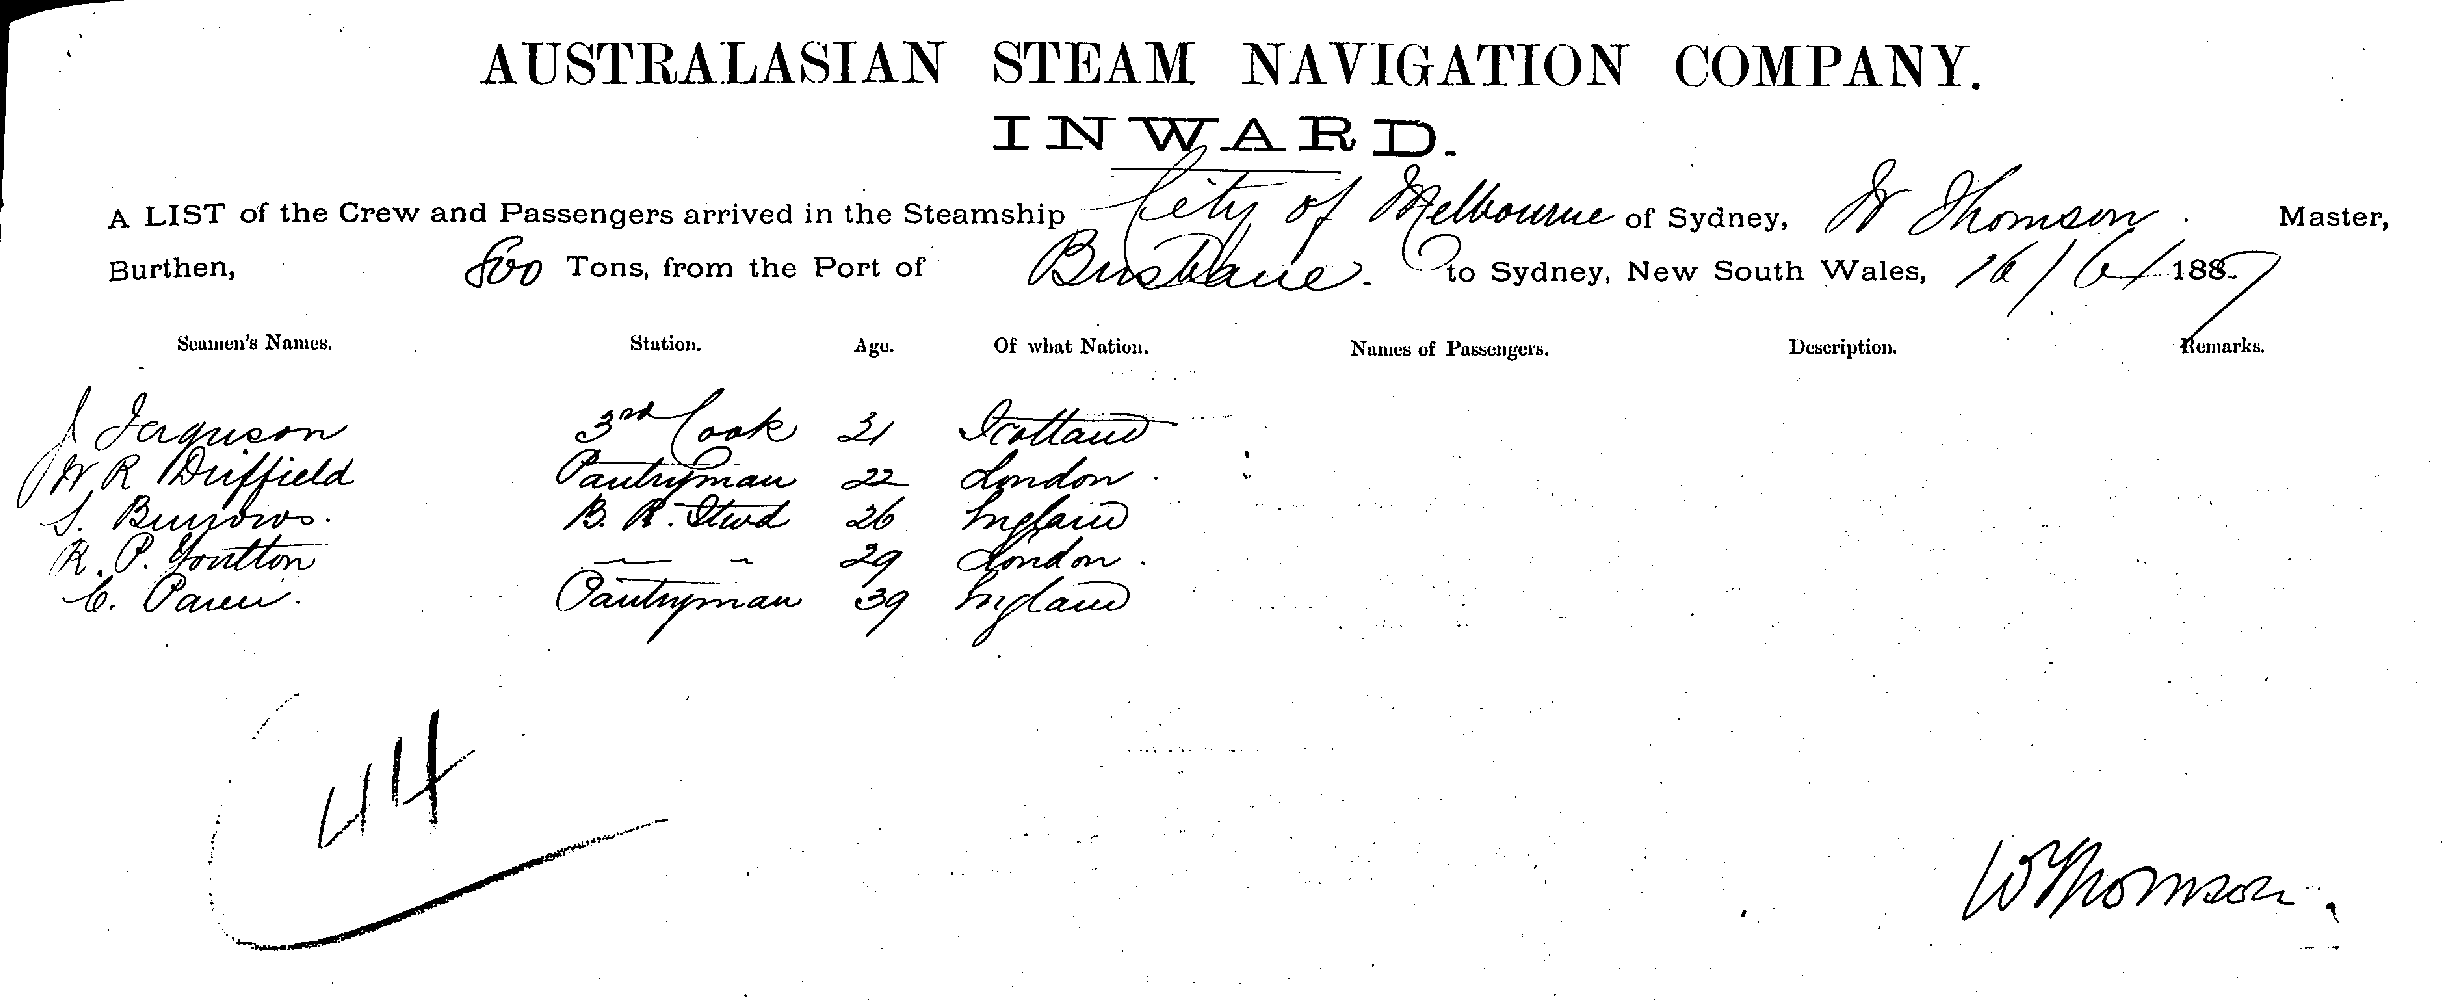 AUSTRALASIAN STEAM NAVIGATION COMPANY.
INWARD.
A LIST of the Crew and Passengers arrived in the Steamship City of Melbourne of Sydney, W Thomson. Master,
Burthen, 800 Tons, from the Port of Brisbane. to Sydney, New South Wales, 16/6/1887
Seamen's Names. Station. Age. Of what Nation. Names of Passengers. Description. Remarks.
J Ferguson 3rd Cook 21 Scotland
W R Driffield Pantryman 22 London.
S. Burrows. B. R. Stwd 26 England
R. P. 29 London.
C. Pantryman 39 England
44
W Thomson.